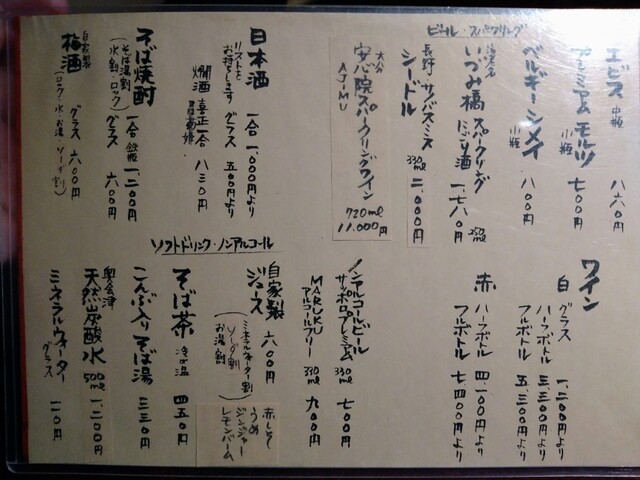 ビール・スパークリング
エビス 中瓶 八六〇円
プレミアムモルツ 小瓶 七〇〇円
ベルギーシメイ 小瓶 八〇〇円
いづみ橋 スパークリング にごり酒 250ml 一、七八〇円
長野・サノバスミス
シードル 330ml 二、〇〇〇円
大分
安心院スパークリングワイン
AJIMU
720ml
11.000円
日本酒 一合 一、〇〇〇円より
リストを
お持ちします グラス 五〇〇円より
燗酒 喜正 一合 八三〇円
そば焼酎 一合 鉄瓶 一、二〇〇円
(そば湯割
水割・ロック) グラス 六〇〇円
自家製
梅酒 グラス 六〇〇円
(ロック・水・お湯・ソーダ割)
ワイン
白 グラス 一、二〇〇円
ハーフボトル 三、三〇〇円より
フルボトル 五、三〇〇円より
赤 ハーフボトル 四、一〇〇円より
フルボトル 七、四〇〇円より
ソフトドリンク・ノンアルコール
ノンアルコールビール
サッポロプレミアム 330ml 七〇〇円
MARUKU
アルコールフリー 330ml 九〇〇円
自家製
ジュース 六〇〇円
(ミネラルウォーター割
ソーダ割
お湯割)
赤しそ
うめ
ジンジャー
レモンバーム
そば茶 冷or温 四五〇円
こんぶ入りそば湯 三三〇円
奥会津
天然炭酸水 500ml 一、二〇〇円
ミネラルウォーター
グラス 一一〇円